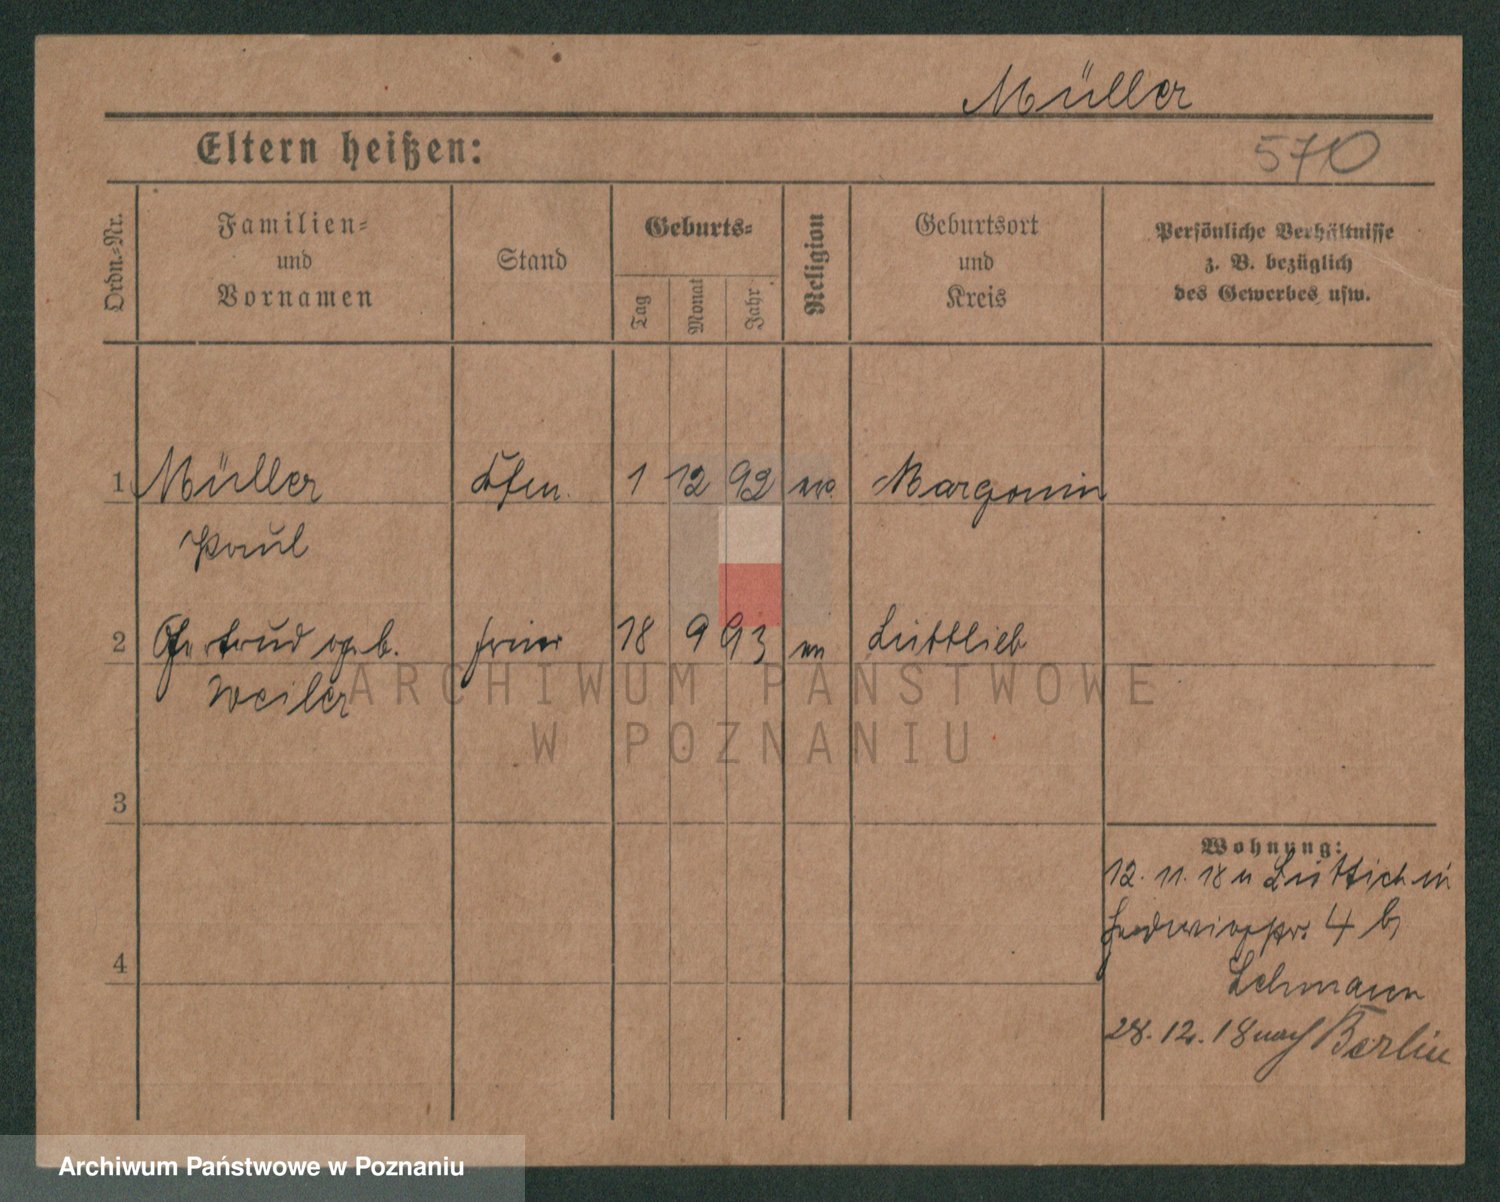 Müller
Eltern heißen:
570
Ordn.-Nr.
Familien-
und
Vornamen
Stand
Geburts-
Tag
Monat
Jahr
Religion
Geburtsort
und
Kreis
Persönliche Verhältnisse
z. B. bezüglich
des Gewerbes usw.
1 Müller Kfm. 1 12 92 ev. Margonin
Paul
2 Gertrud geb. 18 9 93 ev
Weiler
ARCHIWUM PAŃSTWOWE
W POZNANIU
3
Wohnung:
12. 11. 18 v Lüttich in
4 b
4
Lehmann
28. 12. 18 nach Berlin
Archiwum Państwowe w Poznaniu